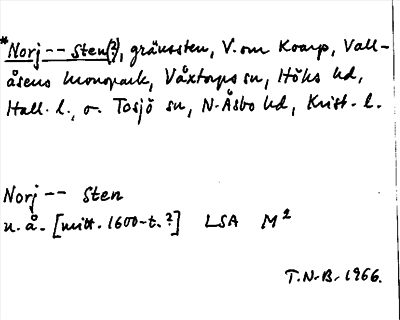 *Norj-- sten(?), gränssten, V. om Koarp, Vall-
åsens kronopark, Våxtorps sn, Höks hd,
Hall. l., o. Tåsjö sn, N. Åsbo hd, Krist. l.
Norj-- Sten
u. å. [mitt. 1600-t.?] LSA M²
T.N.B. 1966.